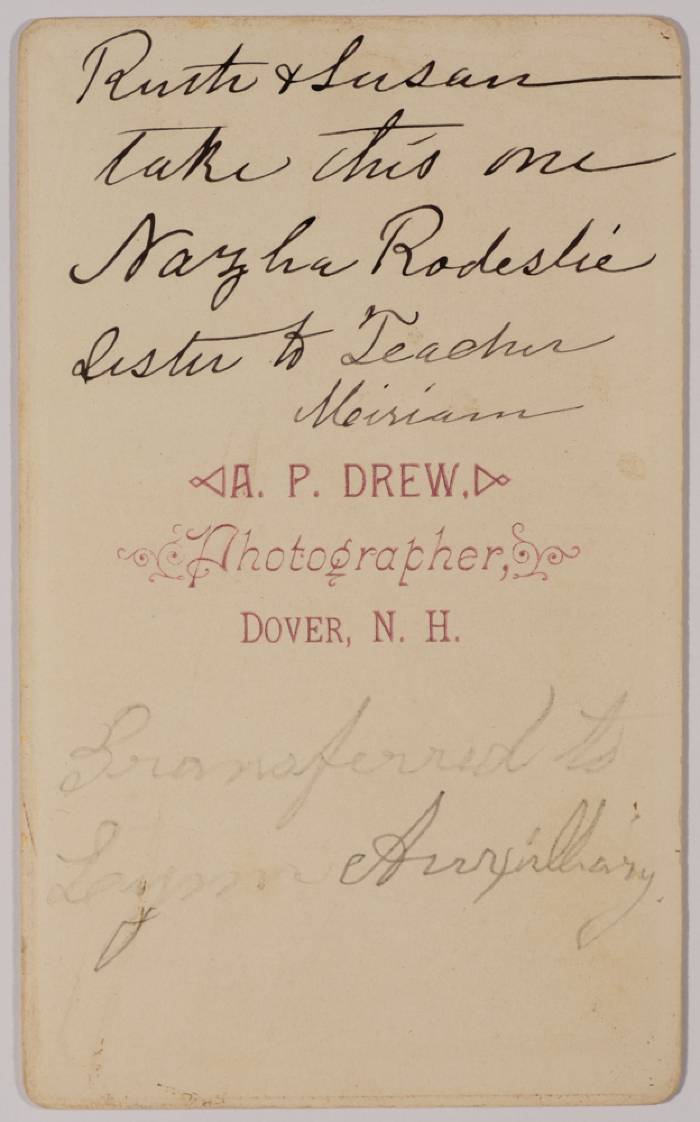 Ruth & Susan
take this one
Nazha Rodeslie
Sister to Teacher
Miriam
A. P. DREW.
Photographer,
DOVER, N. H.
Transferred to
Lynn Auxilliary.